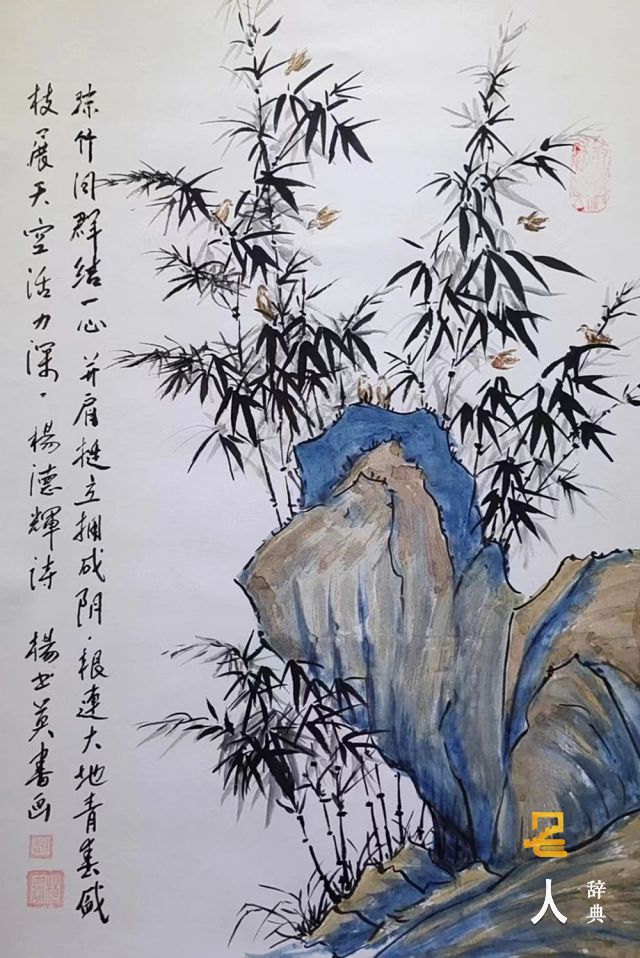 综竹同群结一心并肩挺立拥成阴·根连大地青春盛
枝展天空活力深·楊德輝诗 楊士英書画
名人
辞典